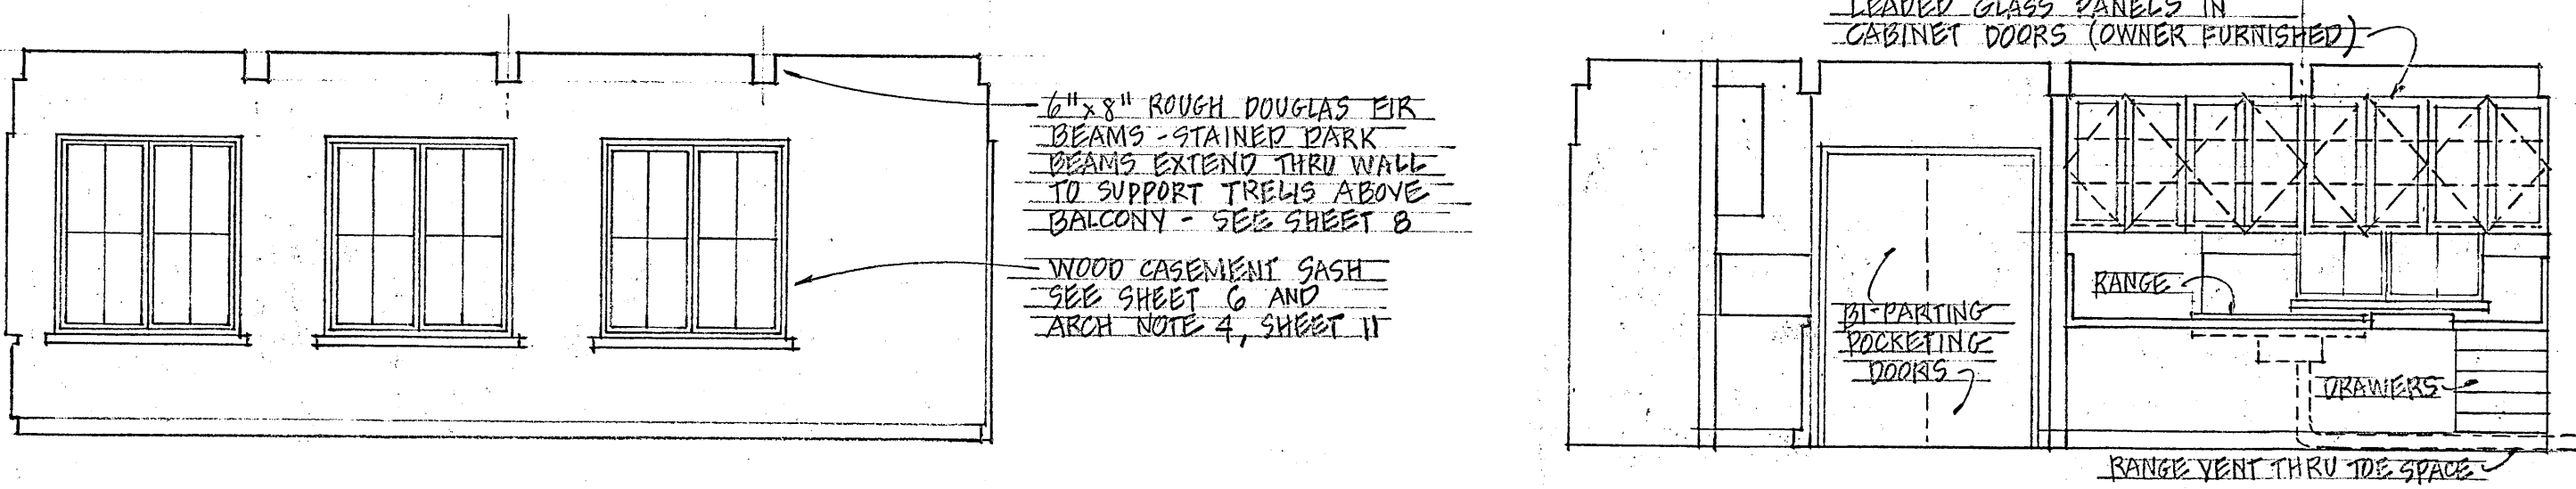 6"x8" ROUGH DOUGLAS FIR
BEAMS - STAINED DARK
BEAMS EXTEND THRU WALL
TO SUPPORT TRELIS ABOVE
BALCONY - SEE SHEET 8
WOOD CASEMENT SASH
SEE SHEET 6 AND
ARCH NOTE 4, SHEET 11
LEADED GLASS PANELS IN
CABINET DOORS (OWNER FURNISHED)
RANGE
BI-PARTING
POCKETING
DOORS
DRAWERS
RANGE VENT THRU TOE SPACE